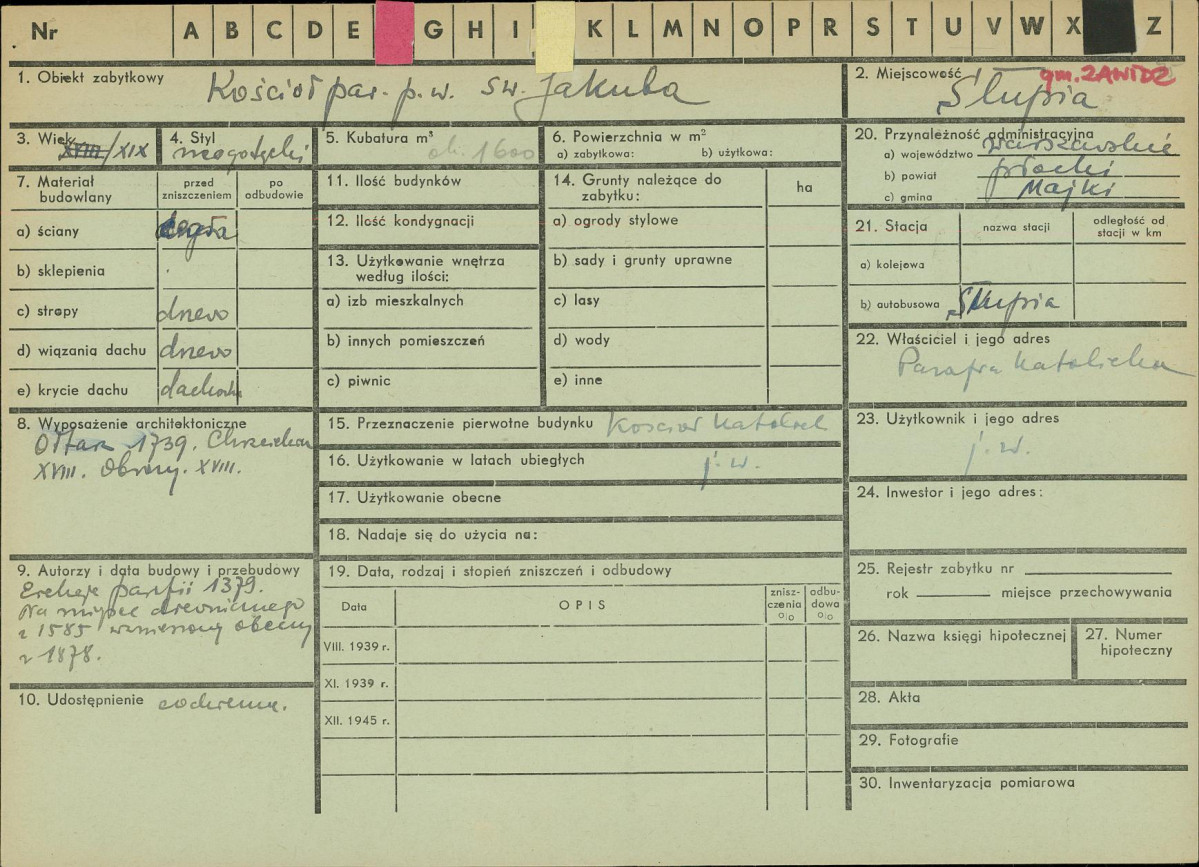 Nr A B C D E G H I K L M N O P R S T U V W X Z
1. Obiekt zabytkowy Kościół par. p.w. św. Jakuba
2. Miejscowość gm. ZAWIDZ
Słupia
3. Wiek XVIII/XIX
4. Styl neogotycki
5. Kubatura m³ ok. 1600
6. Powierzchnia w m²
a) zabytkowa: b) użytkowa:
20. Przynależność administracyjna
a) województwo warszawskie
b) powiat płocki
c) gmina Majki
7. Materiał budowlany
przed zniszczeniem
po odbudowie
a) ściany cegła
b) sklepienia
c) stropy drewo
d) wiązania dachu drewo
e) krycie dachu dachówka
11. Ilość budynków
12. Ilość kondygnacji
13. Użytkowanie wnętrza
według ilości:
a) izb mieszkalnych
b) innych pomieszczeń
c) piwnic
14. Grunty należące do
zabytku:
ha
a) ogrody stylowe
b) sady i grunty uprawne
c) lasy
d) wody
e) inne
21. Stacja
nazwa stacji
odległość od
stacji w km
a) kolejowa
b) autobusowa Słupia
22. Właściciel i jego adres
Parafia Katolicka
8. Wyposażenie architektoniczne
Ołtarz 1739. Chrzcielnica
XVIII. Obrazy. XVIII.
15. Przeznaczenie pierwotne budynku Kościół Katolick
16. Użytkowanie w latach ubiegłych j. w.
17. Użytkowanie obecne
18. Nadaje się do użycia na:
23. Użytkownik i jego adres
j. w.
24. Inwestor i jego adres:
9. Autorzy i data budowy i przebudowy
Erekcja parafii 1379.
Na miejsce drewnianego
z 1585 wzniesiony obecny
z 1878.
10. Udostępnienie codzienna.
19. Data, rodzaj i stopień zniszczeń i odbudowy
Data
OPIS
znisz-
czenia
o|o
odbu-
dowa
o|o
VIII. 1939 r.
XI. 1939 r.
XII. 1945 r.
25. Rejestr zabytku nr
rok miejsce przechowywania
26. Nazwa księgi hipotecznej
27. Numer
hipoteczny
28. Akta
29. Fotografie
30. Inwentaryzacja pomiarowa